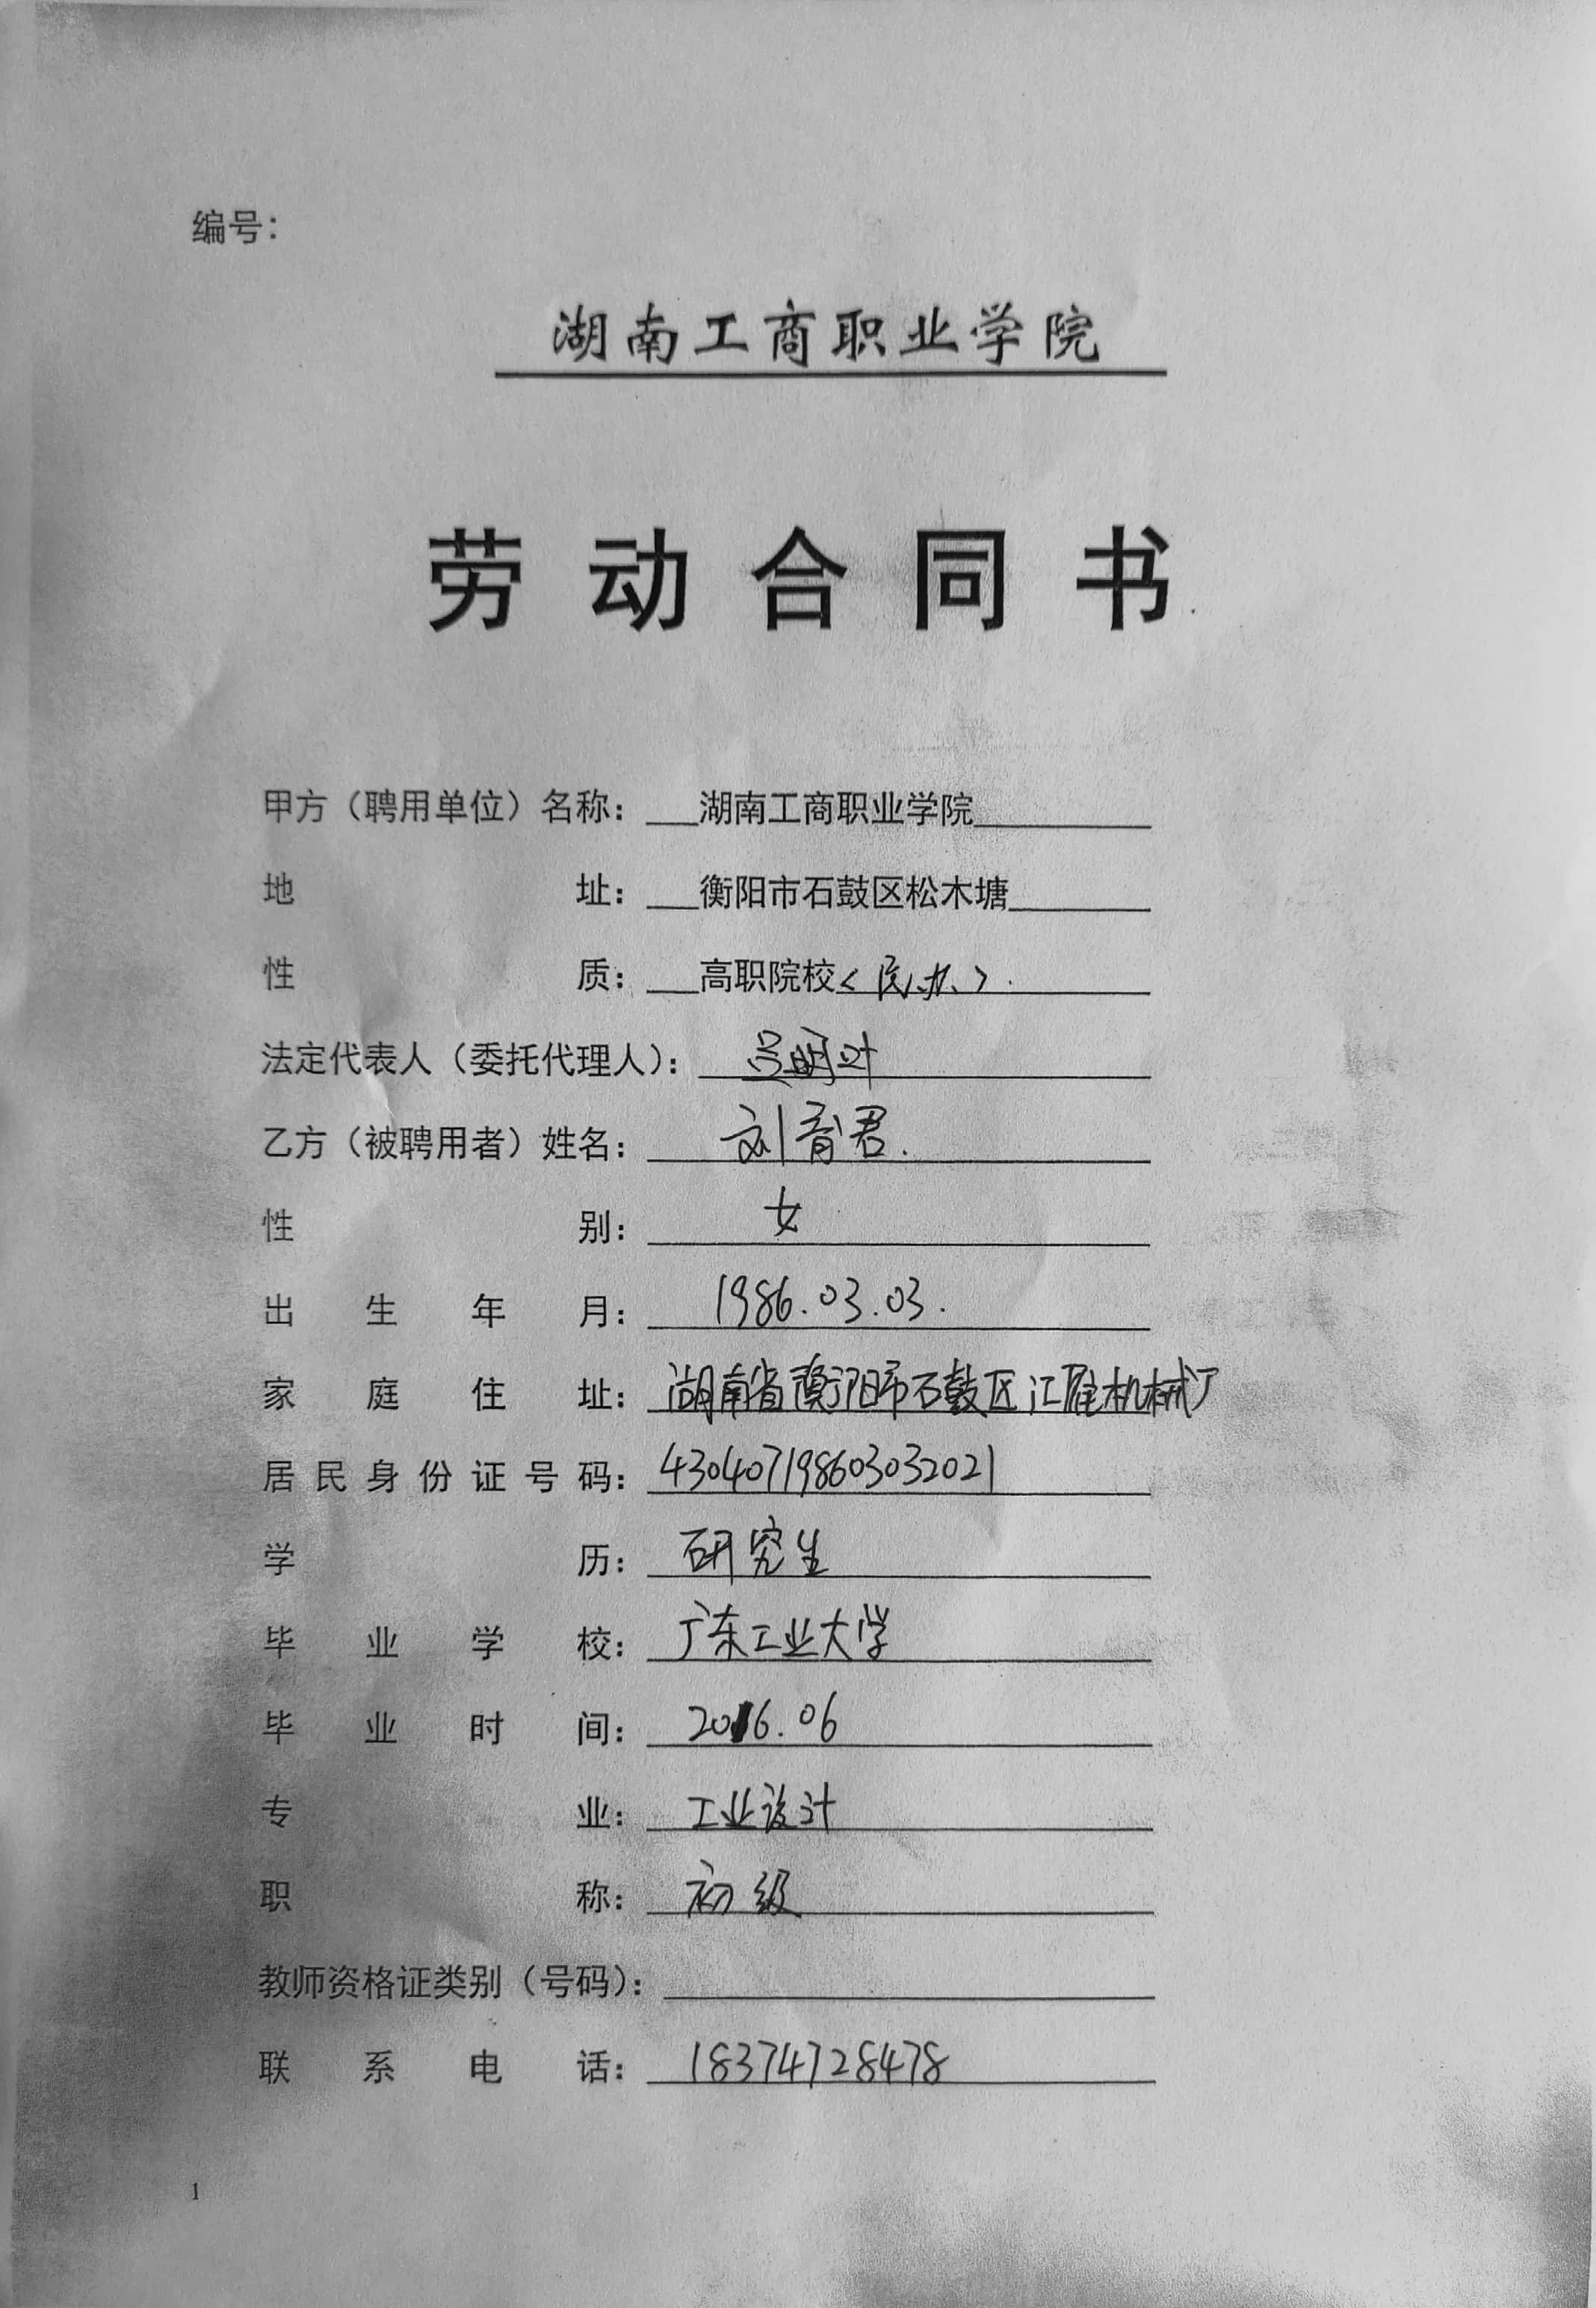 编号：
湖南工商职业学院
劳动合同书
甲方（聘用单位）名称： 湖南工商职业学院
地址： 衡阳市石鼓区松木塘
性质： 高职院校<民办>.
法定代表人（委托代理人）： 吕明叶
乙方（被聘用者）姓名： 刘育君.
性别： 女
出生年月： 1986.03.03.
家庭住址： 湖南省衡阳市石鼓区江雁机械厂
居民身份证号码： 430407198603032021
学历： 研究生
毕业学校： 广东工业大学
毕业时间： 2016.06
专业： 工业设计
职称： 初级
教师资格证类别（号码）：
联系电话： 18374728478
1